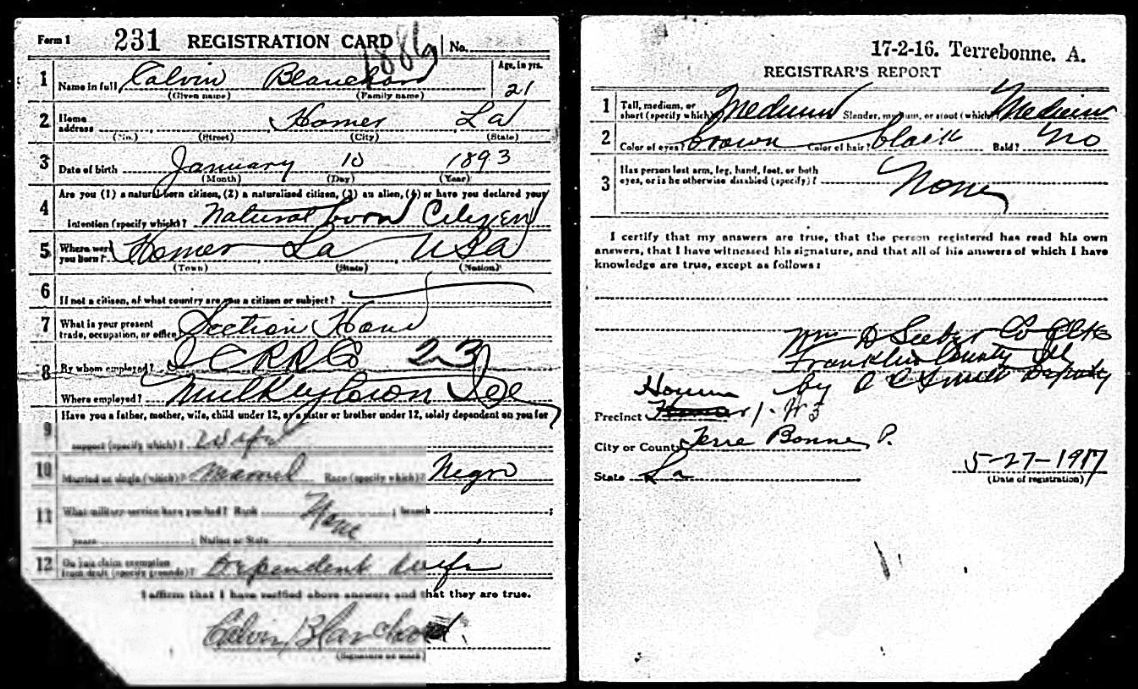 Form 1 231 REGISTRATION CARD No.
1886
1 Name in full Calvin Blanchard Age, in yrs. 21
(Given name) (Family name)
2 Home address Homer La
(No.) (Street) (City) (State)
3 Date of birth January 10 1893
(Month) (Day) (Year)
Are you (1) a natural-born citizen, (2) a naturalized citizen, (3) an alien, (4) or have you declared your
4 intention (specify which)? Natural born Citizen
5 Where were you born? Homer La USA
(Town) (State) (Nation)
6 If not a citizen, of what country are you a citizen or subject?
7 What is your present trade, occupation, or office? Section Hand
8 By whom employed? I C R R Co 23
Where employed? Mulkeytown Ill
Have you a father, mother, wife, child under 12, or a sister or brother under 12, solely dependent on you for
9 support (specify which)? Wife
10 Married or single (which)? Married Race (specify which)? Negro
11 What military service have you had? Rank None ; branch ;
years ; Nation or State
12 Do you claim exemption from draft (specify grounds)? Dependent wife
I affirm that I have verified above answers and that they are true.
Calvin Blanchard
(Signature or mark)
17-2-16. Terrebonne. A.
REGISTRAR'S REPORT
1 Tall, medium, or short (specify which)? Medium Slender, medium, or stout (which)? Medium
2 Color of eyes? brown Color of hair? black Bald? No
3 Has person lost arm, leg, hand, foot, or both eyes, or is he otherwise disabled (specify)? None
I certify that my answers are true, that the person registered has read his own
answers, that I have witnessed his signature, and that all of his answers of which I have
knowledge are true, except as follows:
Wm D Seeber Co Clk
Franklin County Ill
by Smith Deputy
Houma
Precinct 1. W3
City or County Terre Bonne P.
State La
5-27-1917
(Date of registration)